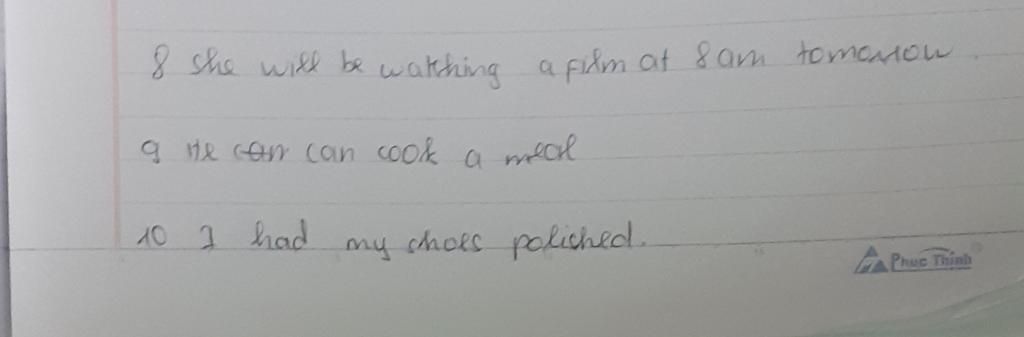 8 she will be watching a film at 8 am tomorrow.
9 He can can cook a meal
10 I had my shoes polished.
Phuc Thinh